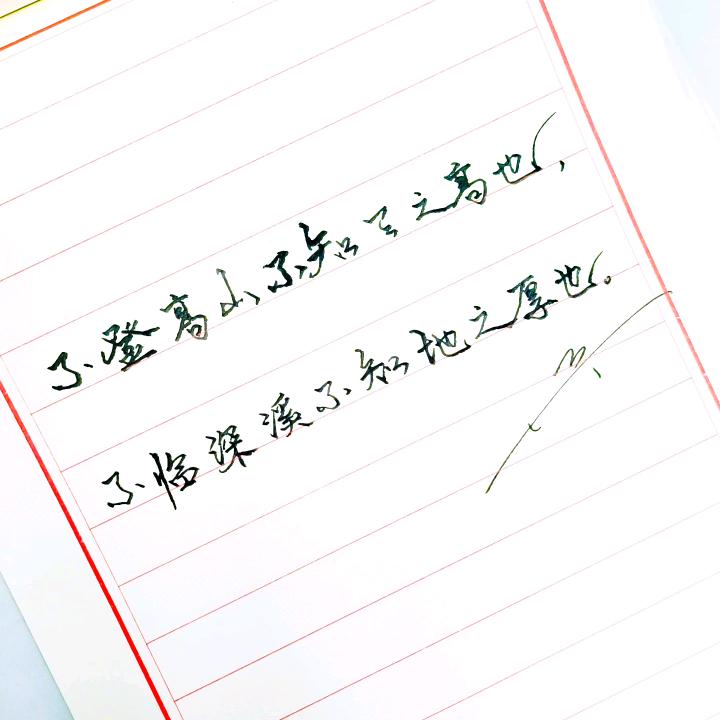 不登高山不知天之高也，
不临深溪不知地之厚也。